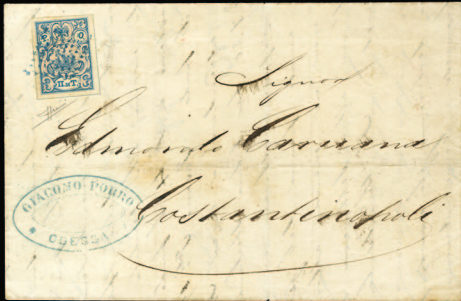 Р О
П и Т.
Signor
Edmondo Caruana
Costantinopoli
GIACOMO PORRO
ODESSA